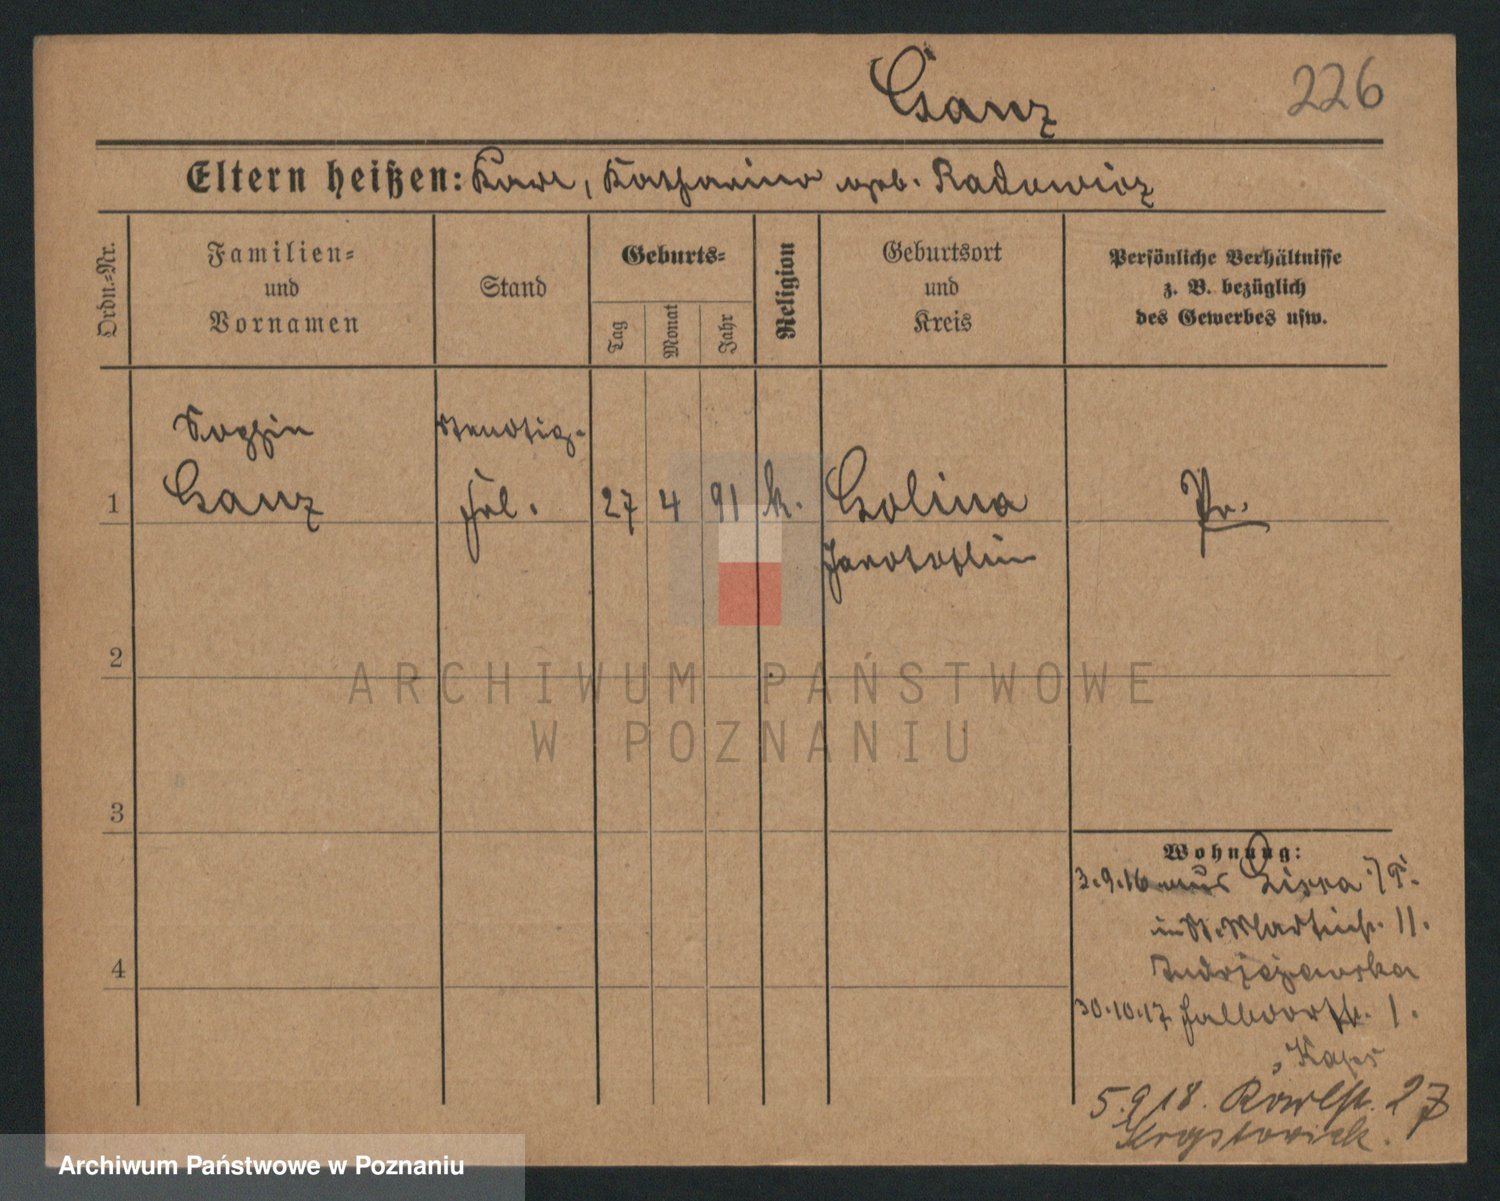 Ganz
226
Eltern heißen: Karl, Katharina geb. Radowicz
Ordn.-Nr.
Familien- und Vornamen
Stand
Geburts-
Tag
Monat
Jahr
Religion
Geburtsort und Kreis
Persönliche Verhältnisse z. B. bezüglich des Gewerbes usw.
Sophie
Ganz
Frl.
27 4 91 k.
Golina
Jarotschin
Pr.
1
2
3
4
Wohnung:
3.9.16 aus Lissa i/P.
in St. Martinstr. 11.
30.10.17. Halbdorfstr. 1.
5.9.18. 27
ARCHIWUM PAŃSTWOWE
W POZNANIU
Archiwum Państwowe w Poznaniu